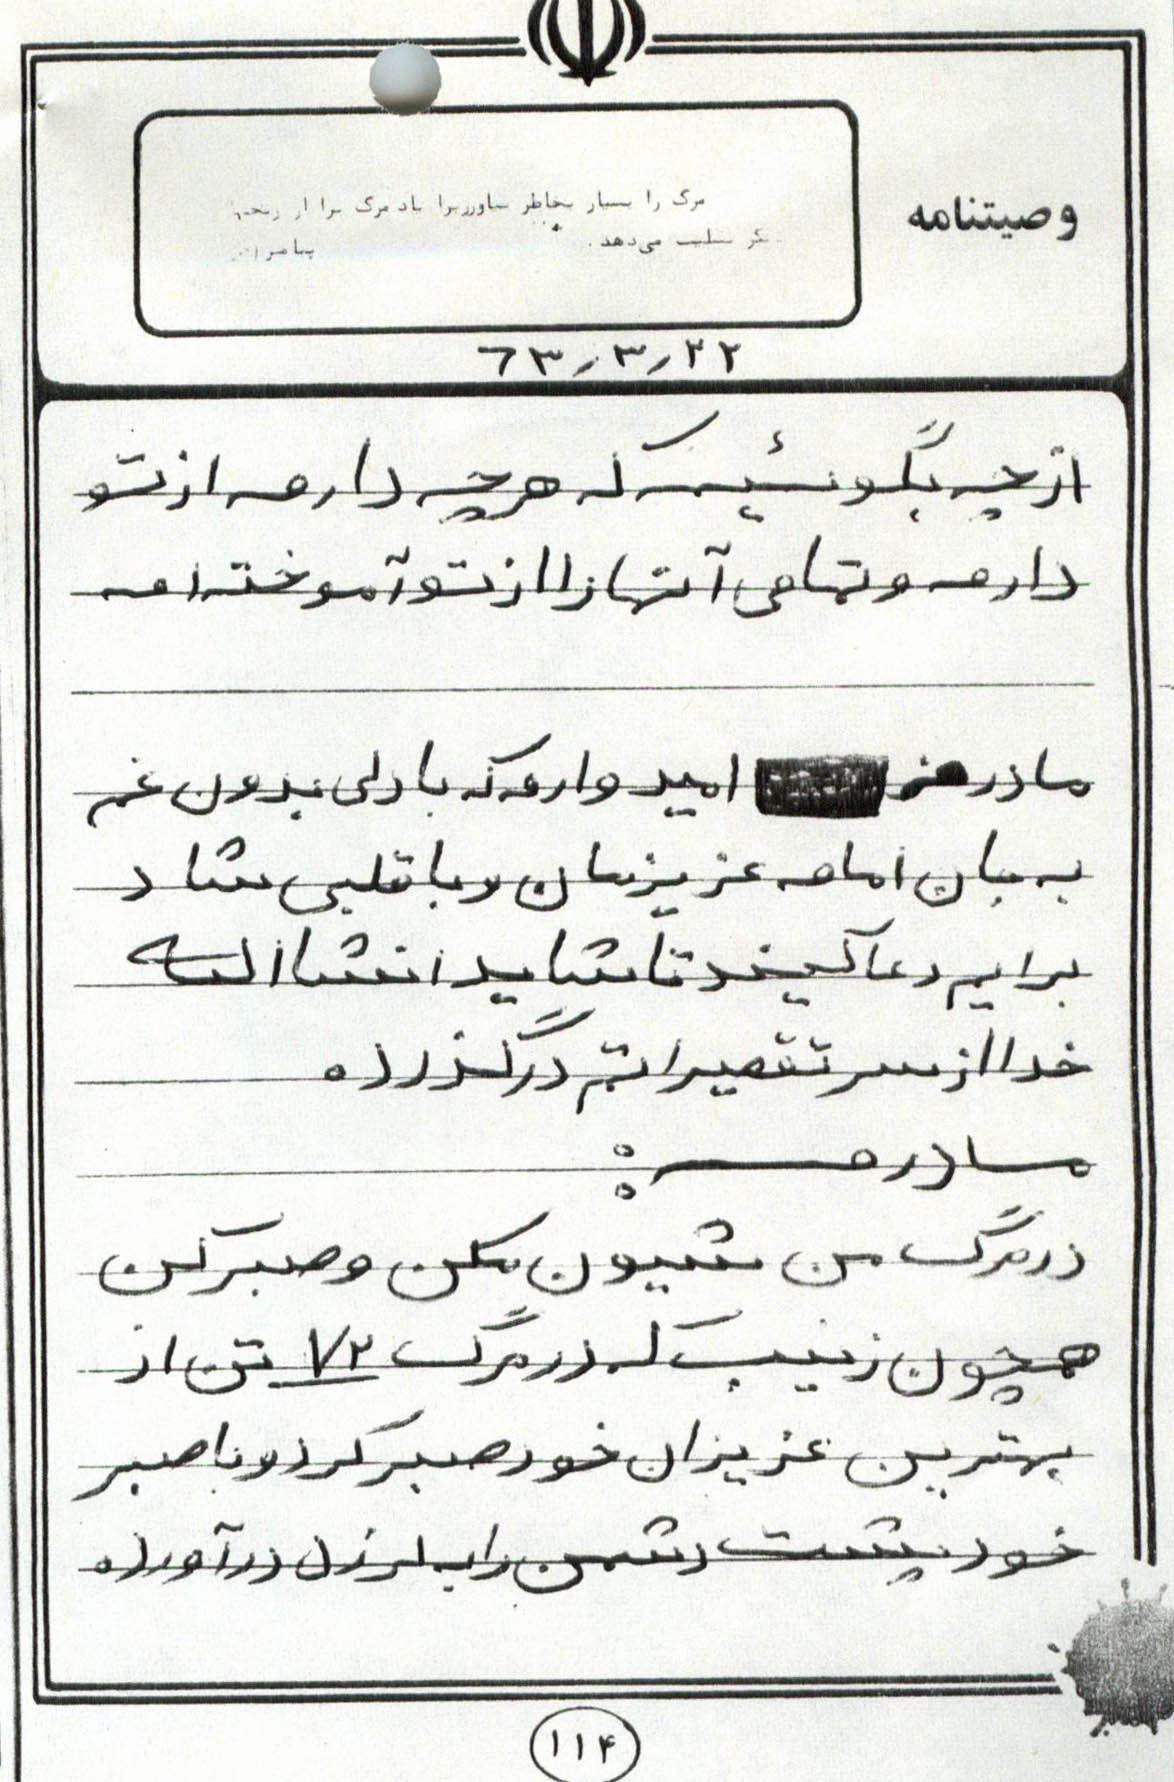 وصیتنامه
مرگ را بسیار بخاطر بیاور زیرا یاد مرگ ترا از
تسلیت می‌دهد.
۶۳٫۳٫۲۲
از چه بگوئیم که هرچه دارم از تو
دارم و تمامی آنها را از تو آموخته ام
مادر امیدوارم که با دلی بدون غم
به جان امام عزیزمان و با قلبی شاد
برایم دعا کنید تا شاید انشاالله
خدا از سر تقصیراتم درگذرد ه
مادرم :
در مرگ من شیون مکن و صبر کن
همچون زینب که در مرگ ۷۲ تن از
بهترین عزیزان خود صبر کرد و با صبر
خود پشت دشمن را به لرزه درآورد ه
۱۱۴